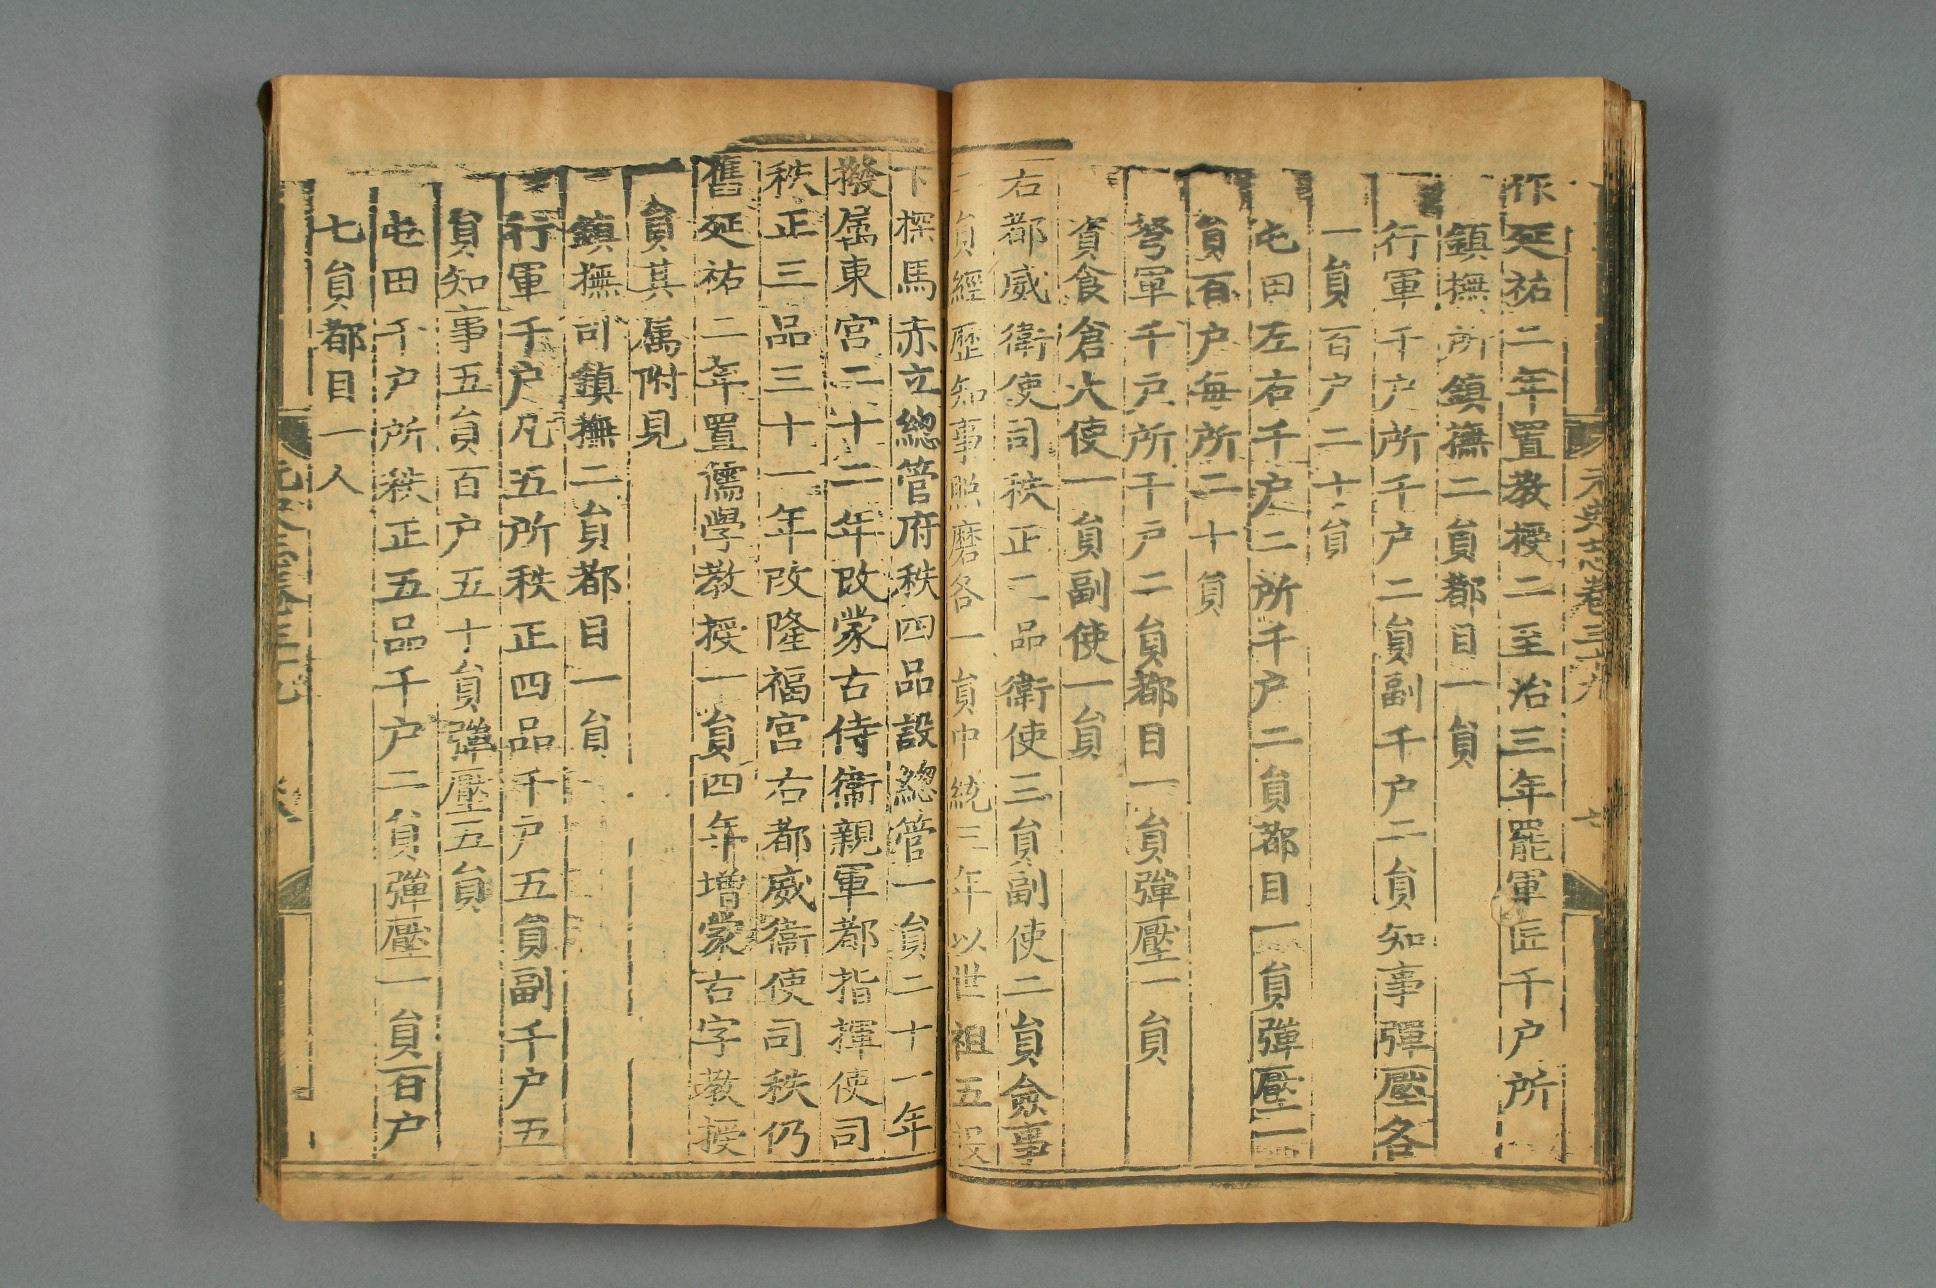 元史志卷三十九
七
作延祐二年置教授二至治三年罷軍匠千户所
鎮撫所鎮撫二員都目一員
行軍千户所千户二員副千户二員知事彈壓各
一員百户二十員
屯田左右千户二所千户二員都目一員彈壓一
員百户每所二十員
弩軍千户所千户二員都目一員彈壓一員
資食倉大使一員副使一員
右都威衛使司秩正二品衛使三員副使二員僉事
二員經歷知事照磨各一員中統三年以世祖五投
下探馬赤立總管府秩四品設總管一員二十一年
撥属東宮二十二年改蒙古侍衛親軍都指揮使司
秩正三品三十一年改隆福宮右都威衛使司秩仍
舊延祐二年置儒學教授一員四年增蒙古字教授
一員其属附見
鎮撫司鎮撫二員都目一員
行軍千户凡五所秩正四品千户五員副千户五
員知事五員百户五十員彈壓五員
屯田千户所秩正五品千户二員彈壓一員百户
七員都目一人
元史志卷三十九